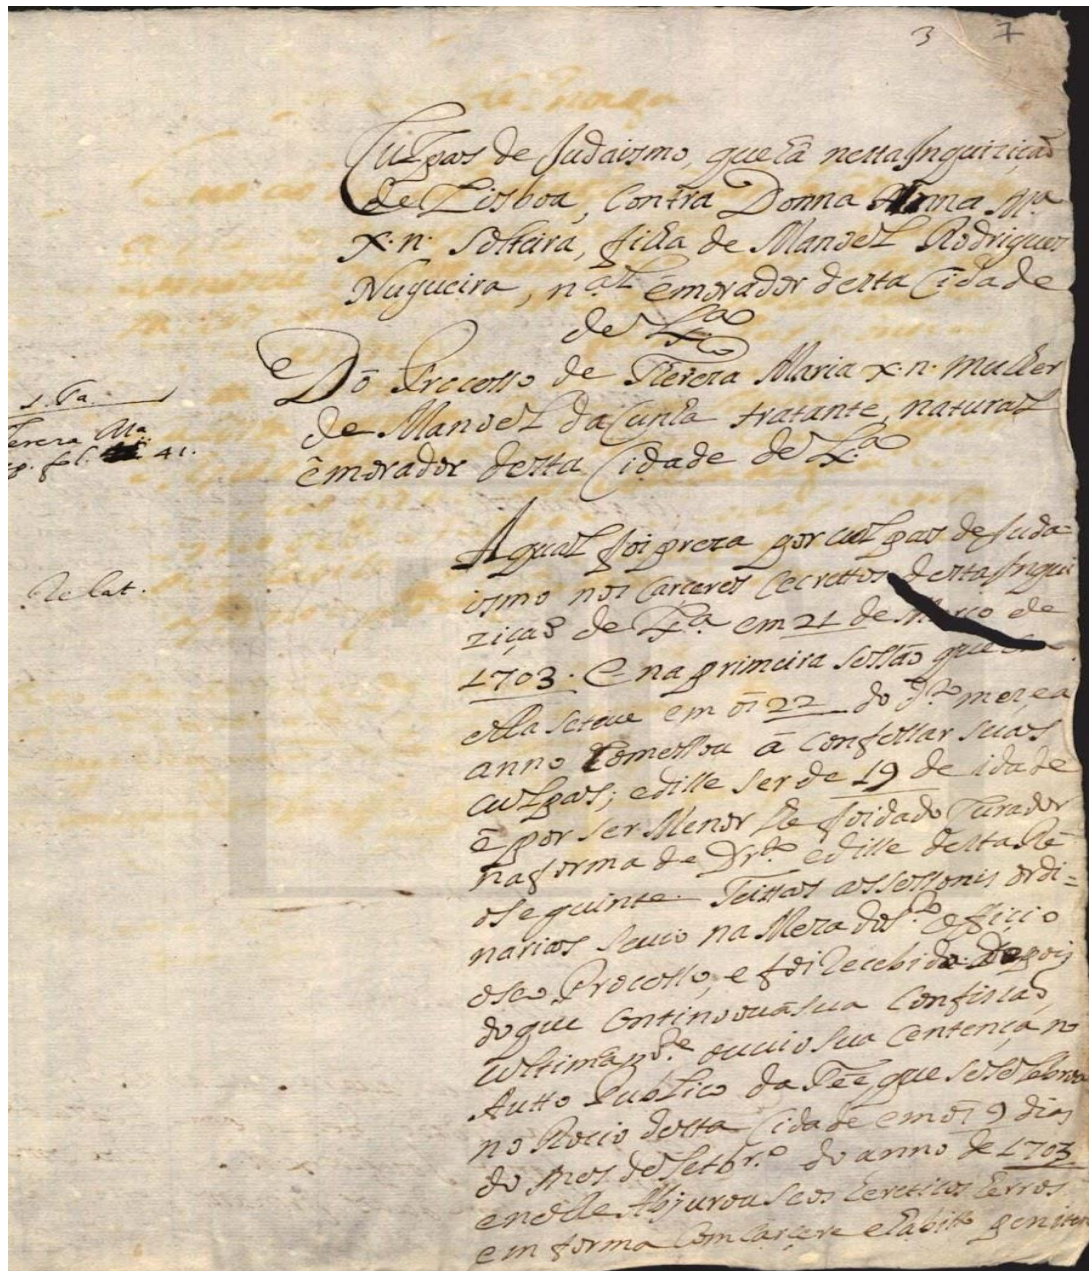 3 7
Culpas de Judaismo, que ha nesta Inquiziçaõ
de Lisboa, Contra Donna Anna Mª
x.n. Solteira, filha de Manoel Rodrigues
Nugueira, n.al e morador desta Cidade
de Lxª
Do Processo de Thereza Maria x.n. mulher
de Manoel da Cunha tratante, natural
e morador desta Cidade de Lxª
1. Tª.
Tereza Mª
fol. 41.
A qual foi preza por culpas de Juda=
ismo nos Carceres Cecrettos desta Inqui
ziçaõ de Lxª em 21 de Março de
1703. E na primeira Sessaõ que
Relat.
ella se teve em os 22 do dº mez e a
anno Comessou a Confessar suas
culpas; e disse ser de 19 de idade
e por ser Menor lhe foi dado Curador
na forma de Drtº e disse desta Re
o seguinte. Feittas as Sessonis ordi=
narias Seuio na Meza do Sº Officio
o seo Processo, e foi Recebido. Depois
do que Continuou a sua Confissaõ,
ultimamte ouuio sua Centença no
Autto Publico da Fée, que se Selebrou
no Rocio desta Cidade em os 9 dias
do Mes de Setbrº do anno de 1703
e nelle Abjurou seos hereticos Erros
em forma Com Carçere e habitto peniten